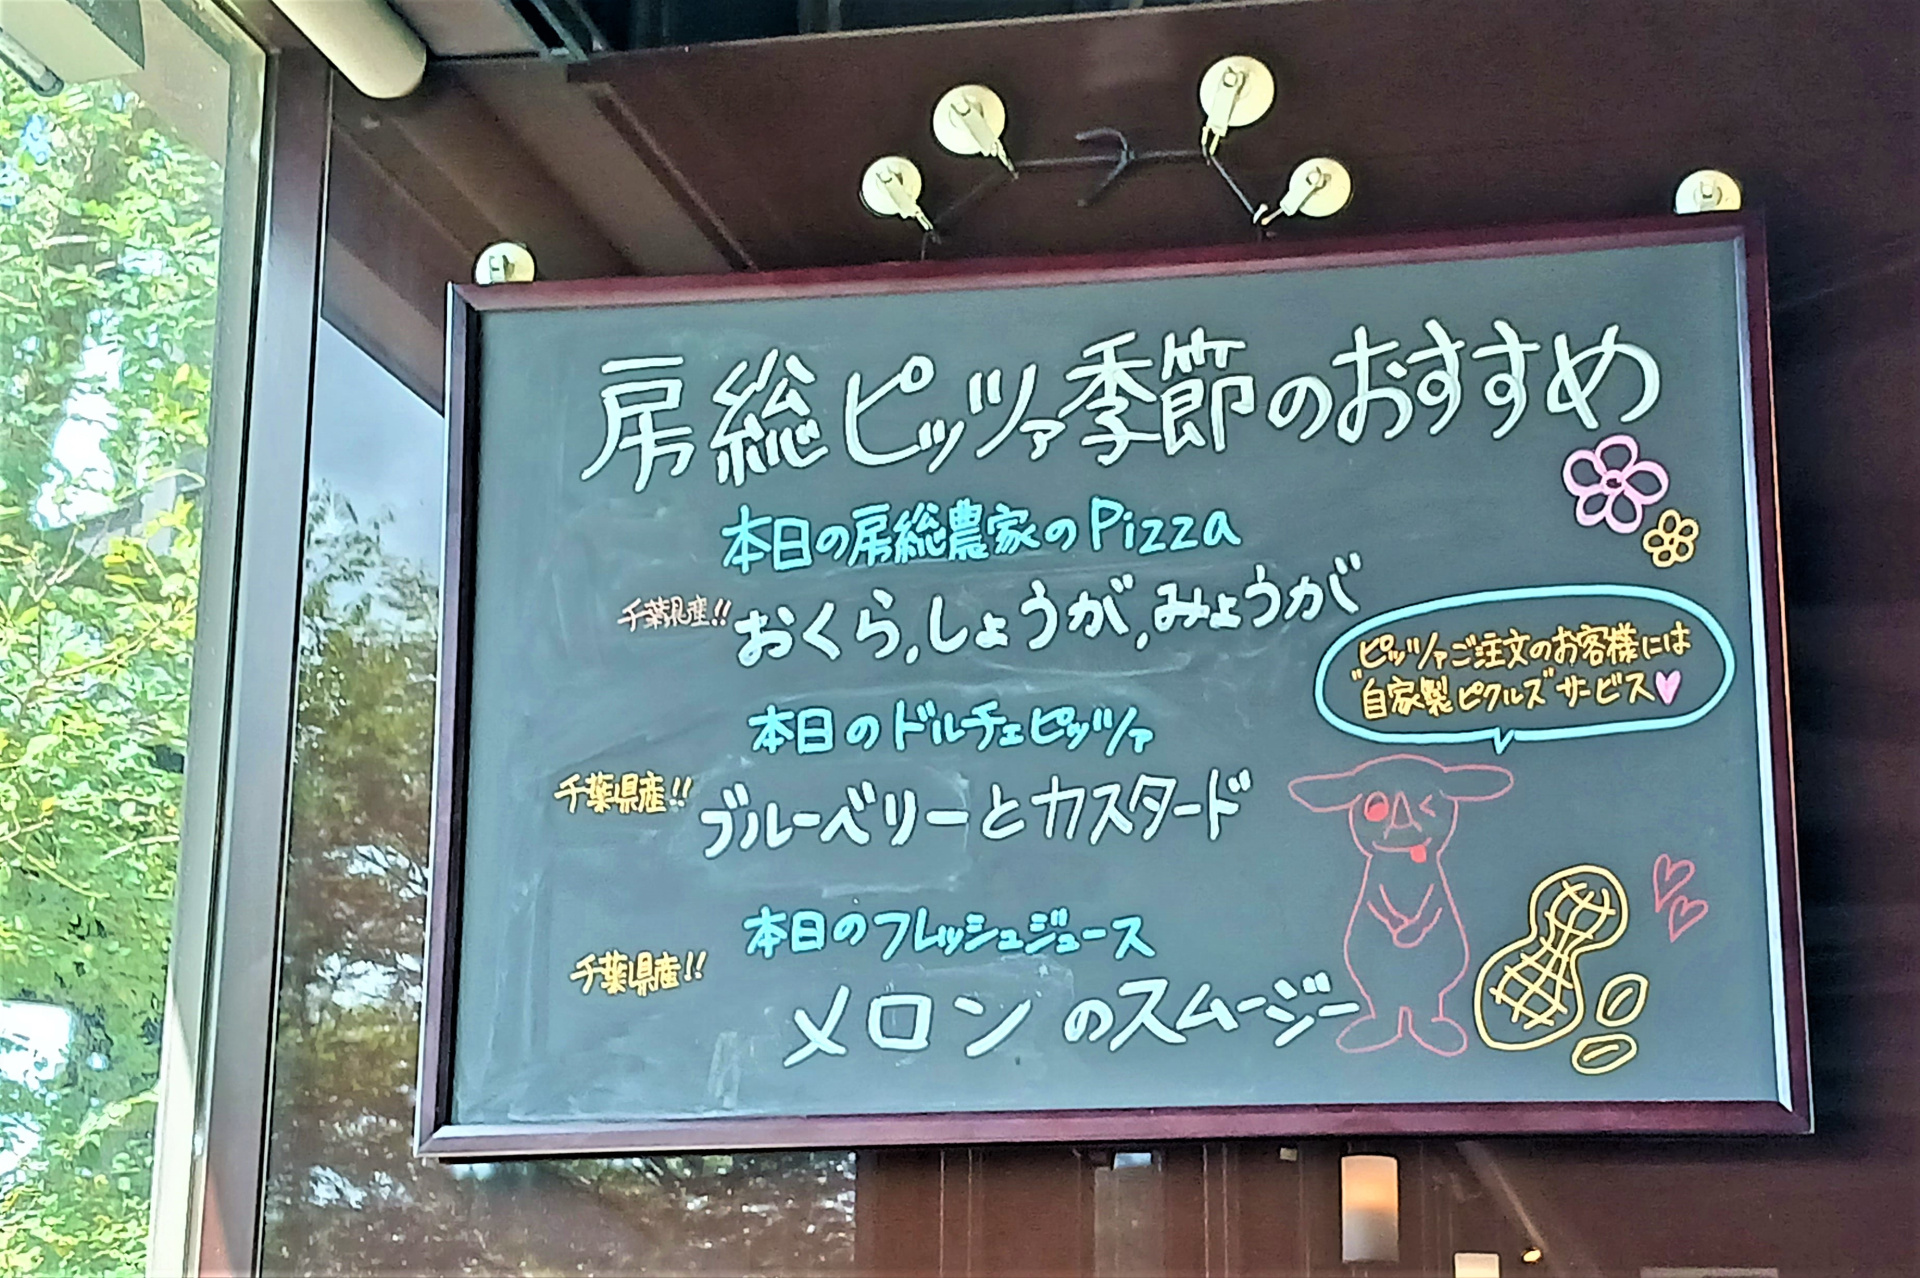 房総ピッツァ季節のおすすめ
本日の房総農家のPizza
千葉県産!! おくら,しょうが,みょうが
ピッツァご注文のお客様には
"自家製ピクルス"サービス♥
本日のドルチェピッツァ
千葉県産!! ブルーベリーとカスタード
本日のフレッシュジュース
千葉県産!! メロンのスムージー